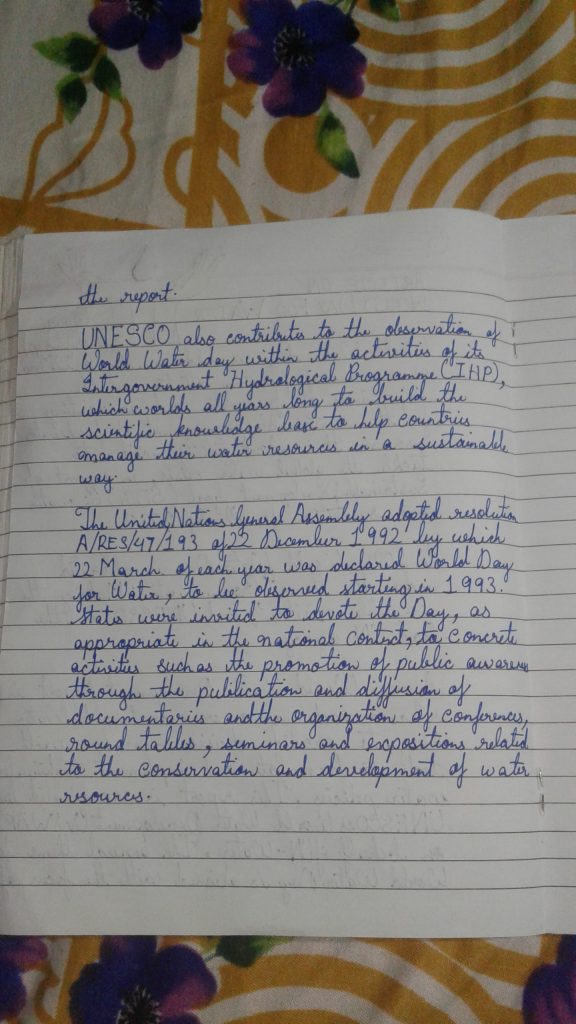 the report.
UNESCO also contributes to the observation of
World Water day within the activities of its
Intergovernment Hydrological Programme (IHP),
which worlds all years long to build the
scientific knowledge base to help countries
manage their water resources in a sustainable
way.
The United Nations General Assembly adopted resolution
A/RES/47/193 of 22 December 1992 by which
22 March of each year was declared World Day
for Water, to be observed starting in 1993.
States were invited to devote the Day, as
appropriate in the national contect, to concrete
activities such as the promotion of public awareness
through the publication and diffusion of
documentaries and the organization of conferences,
round tables, seminars and expositions related
to the conservation and development of water
resources.